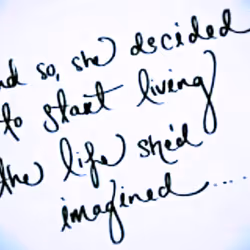 nd so, she decided
to start living
the life she'd
imagined.....